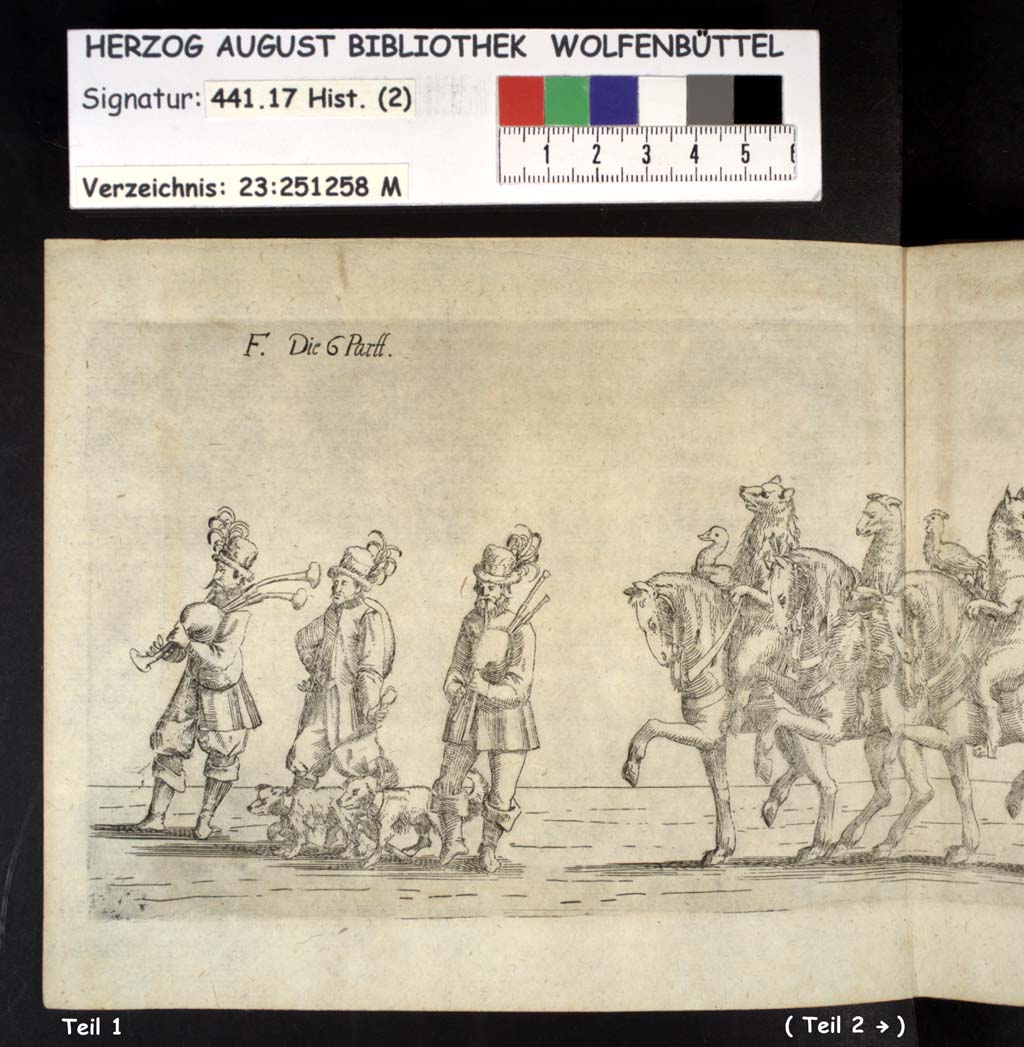 HERZOG AUGUST BIBLIOTHEK WOLFENBÜTTEL
Signatur: 441.17 Hist. (2)
1 2 3 4 5 6
Verzeichnis: 23:251258 M
F. Die 6 Partt.
Teil 1
( Teil 2 → )